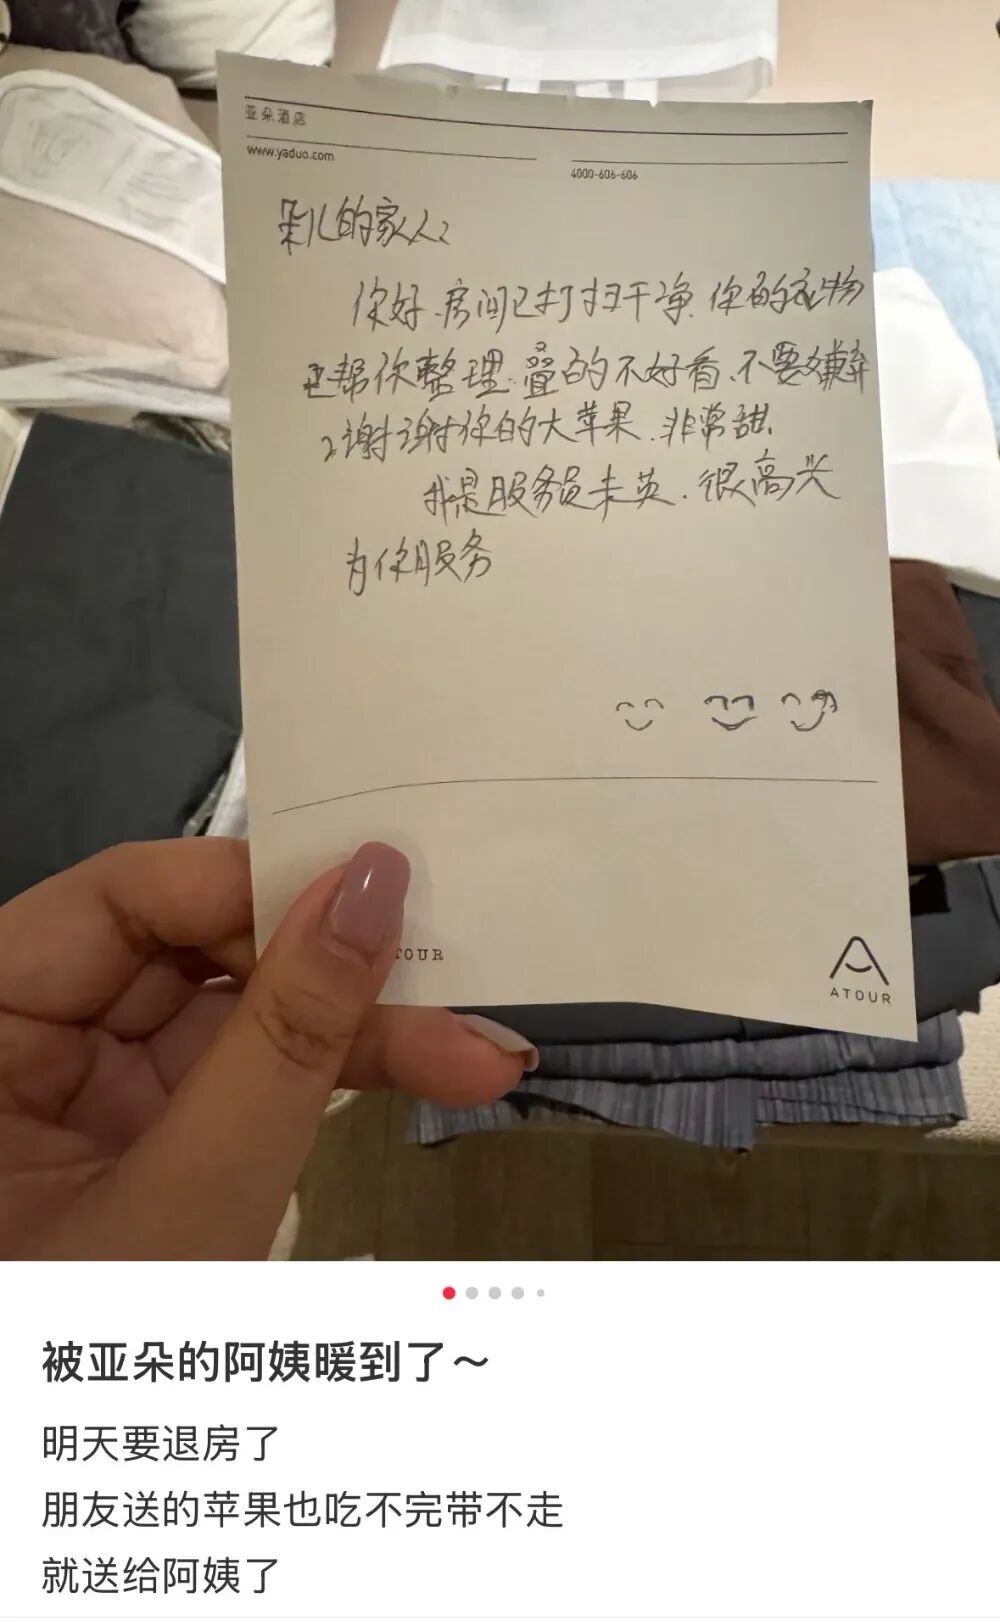 亚朵酒店
www.yaduo.com
4000-606-606
朵儿的家人:
你好、房间已打扫干净、你的衣物
也帮你整理、叠的不好看、不要嫌弃
谢谢你的大苹果、非常甜、
我是服务员未英、很高兴
为你服务
TOUR
ATOUR
被亚朵的阿姨暖到了～
明天要退房了
朋友送的苹果也吃不完带不走
就送给阿姨了